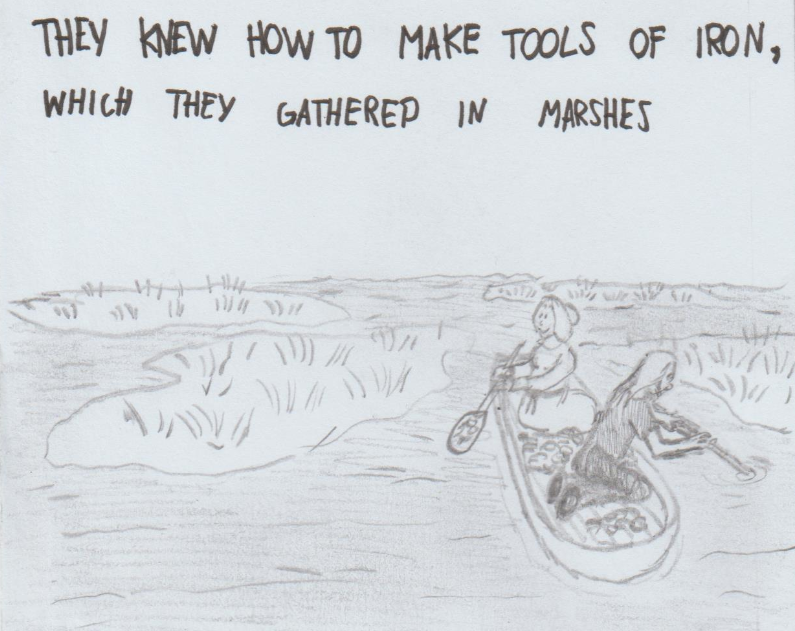 THEY KNEW HOW TO MAKE TOOLS OF IRON,
WHICH THEY GATHERED IN MARSHES